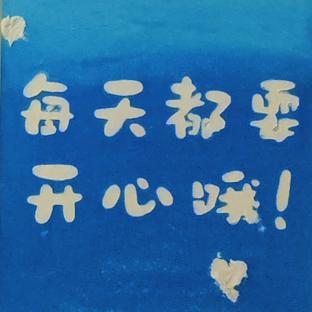 每天都要
开心哦!